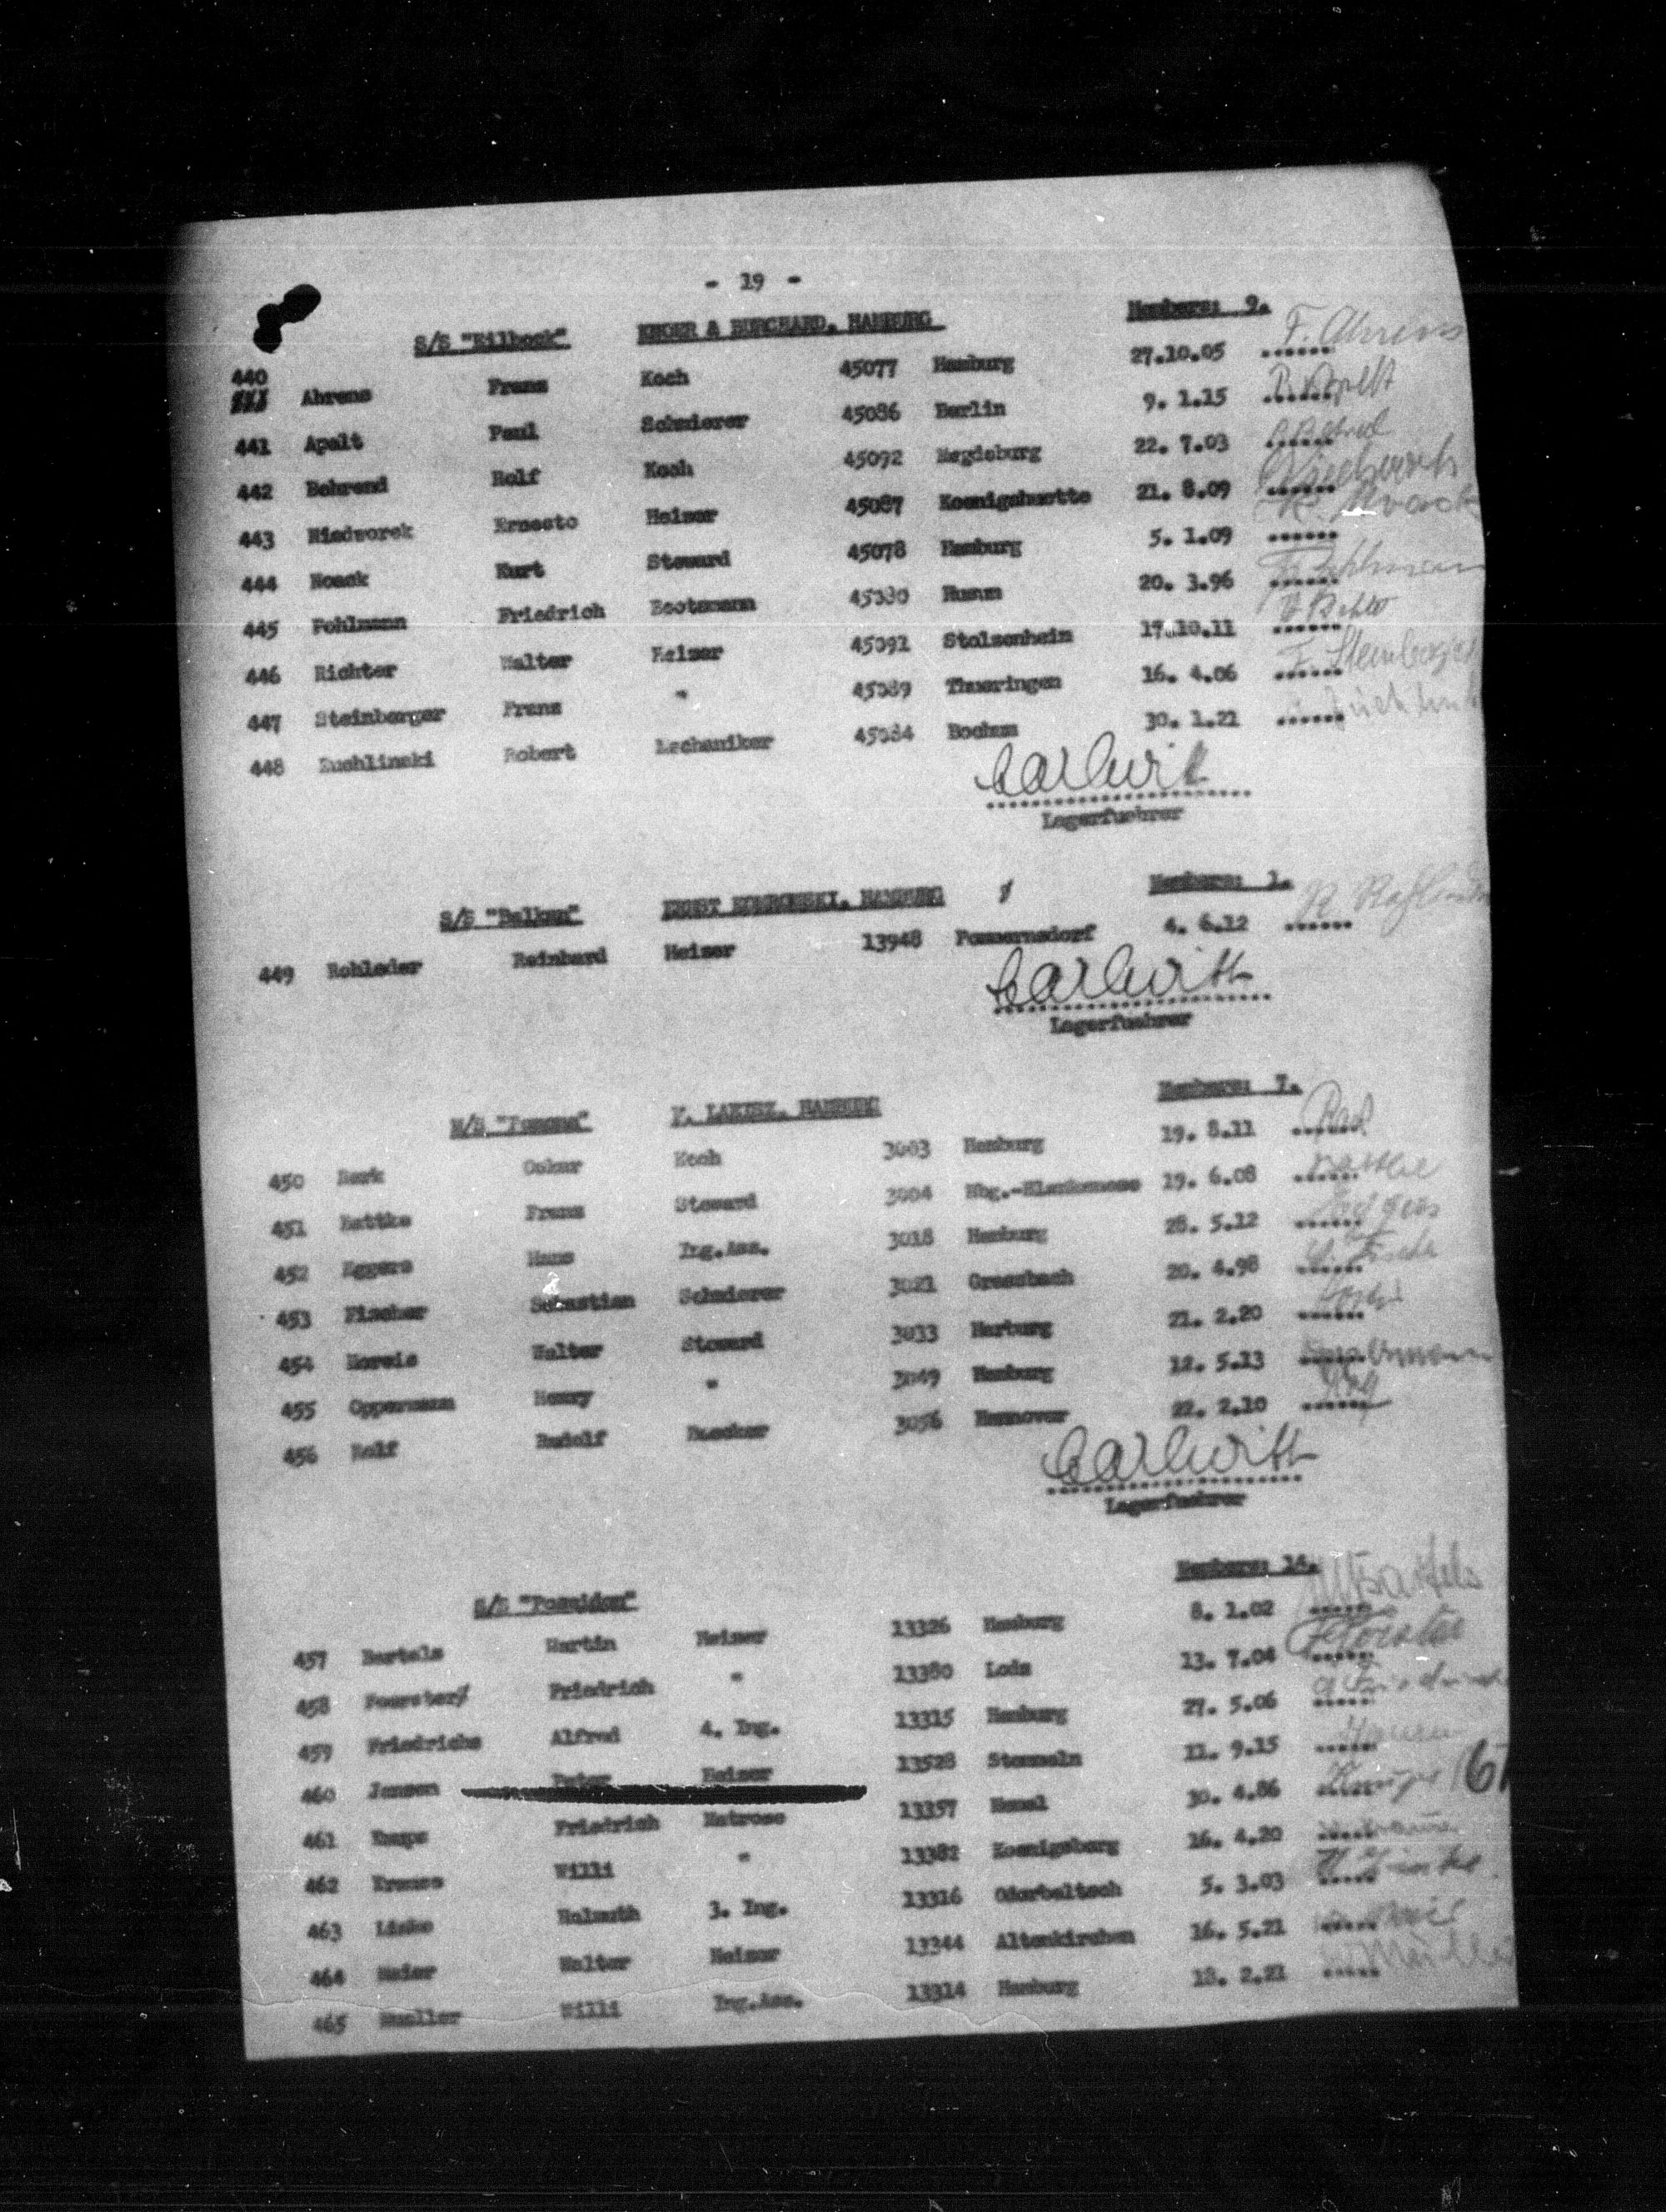 - 19 -
S/S "Eilbeck" KNOER & BURCHARD, HAMBURG Members: 9.
440 Ahrens Franz Koch 45077 Hamburg 27.10.05 ...... F. Ahrens
441 Apelt Paul Schmierer 45086 Berlin 9. 1.15 ...... P. Apelt
442 Behrend Rolf Koch 45092 Magdeburg 22. 7.03 ......
443 Niedworok Ernesto Heizer 45087 Koenigshuette 21. 8.09 ......
444 Noack Kurt Steward 45078 Hamburg 5. 1.09 ...... K. Noack
445 Pohlmann Friedrich Bootsmann 45080 Husum 20. 3.96 ......
446 Richter Walter Heizer 45091 Stolzenhein 17.10.11 ......
447 Steinberger Franz " 45089 Thueringen 16. 4.06 ...... F. Steinberger
448 Zuchlinski Robert Mechaniker 45084 Bochum 30. 1.21 ......
Carl Witt
Lagerfuehrer
S/S "Balkan" ERNST KOMROWSKI, HAMBURG Members: 1.
449 Rohleder Reinhard Heizer 13948 Pommernsdorf 4. 6.12 ......
Carl Witt
Lagerfuehrer
M/S "Pomona" F. LAEISZ, HAMBURG Members: 7.
450 Oskar Koch 3003 Hamburg 19. 8.11 ......
451 Franz Steward 3004 Hbg.-Blankenese 19. 6.08 ......
452 Eggers Hans Ing.Ass. 3018 Hamburg 28. 5.12 ......
453 Fischer Sebastian Schmierer 3021 Grossbach 20. 4.98 ......
454 Walter Steward 3033 Harburg 21. 2.20 ......
455 Oppermann Henry " 3049 Hamburg 12. 5.13 ......
456 Rolf Rudolf Baecker 3056 Hannover 22. 2.10 ......
Carl Witt
Lagerfuehrer
S/S "Poseidon" Members: 14.
457 Bartels Martin Heizer 13326 Hamburg 8. 1.02 ..... M Bartels
458 Foerster Friedrich " 13380 Lodz 13. 7.04 ..... F Förster
459 Friedrichs Alfred 4. Ing. 13315 Hamburg 27. 5.06 .....
460 Jansen Peter Heizer 13528 Stommeln 11. 9.15 .....
461 Friedrich Matrose 13357 Memel 30. 4.86 .....
462 Krause Willi " 13382 Koenigsberg 16. 4.20 .....
463 Helmuth 3. Ing. 13316 5. 3.03 .....
464 Meier Walter Heizer 13344 Altenkirchen 16. 5.21 .....
465 Mueller Willi Ing.Ass. 13314 Hamburg 18. 2.21 .....